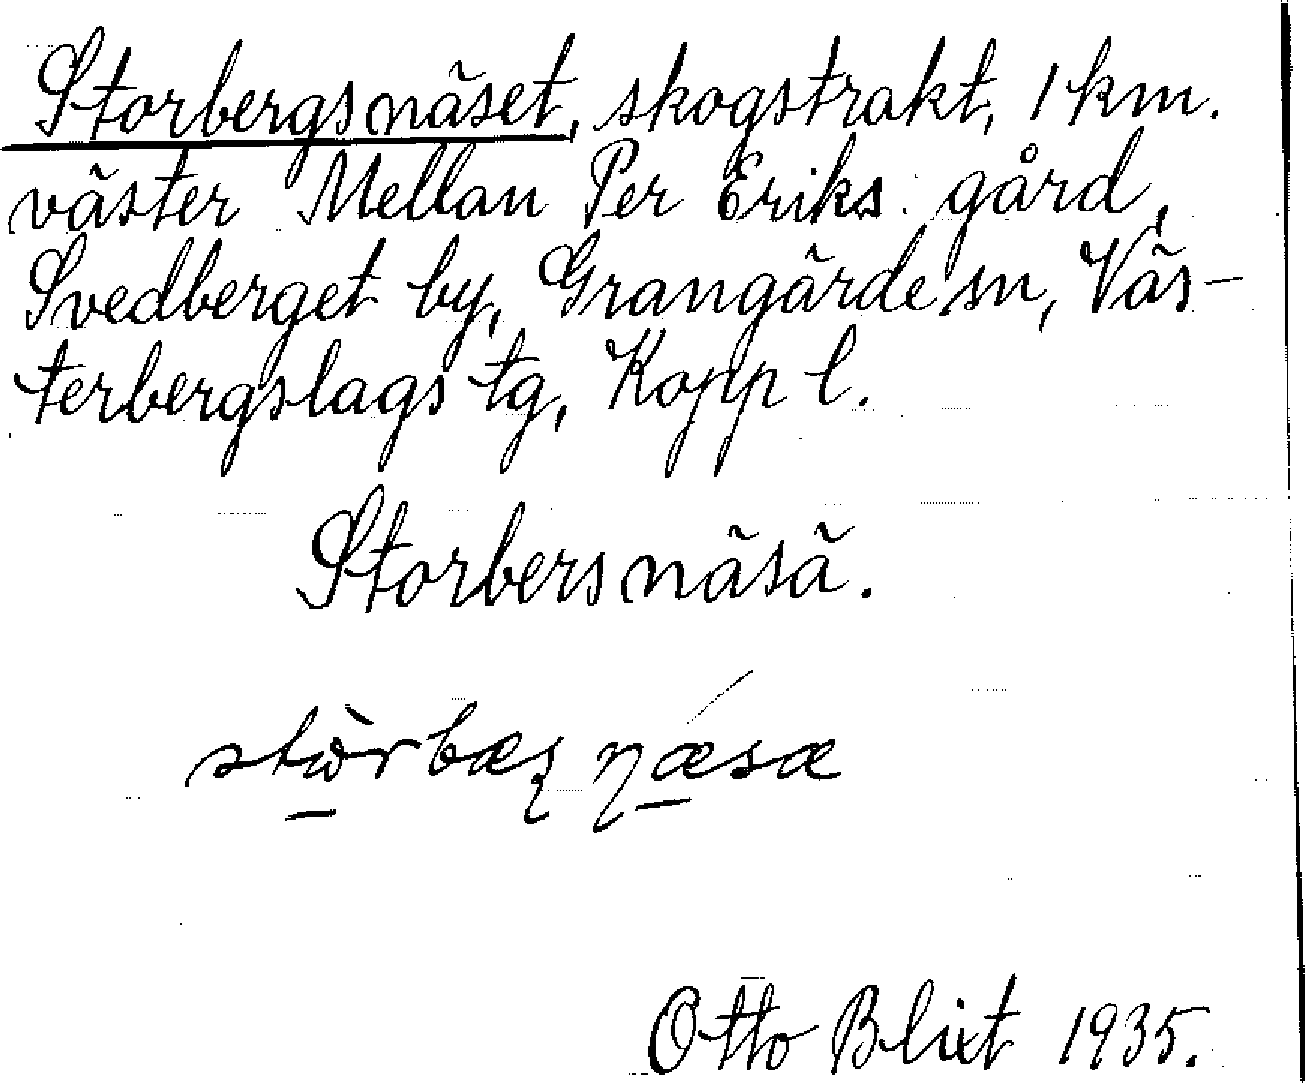 Storbergsnäset, skogstrakt, 1 km.
väster Mellan Per Eriks gård,
Svedberget by, Grangärde sn, Väs-
terbergslags tg, Kopp l.
Storbersnäsä.
stωrbæʂ ɳæsæ
Otto Blixt 1935.